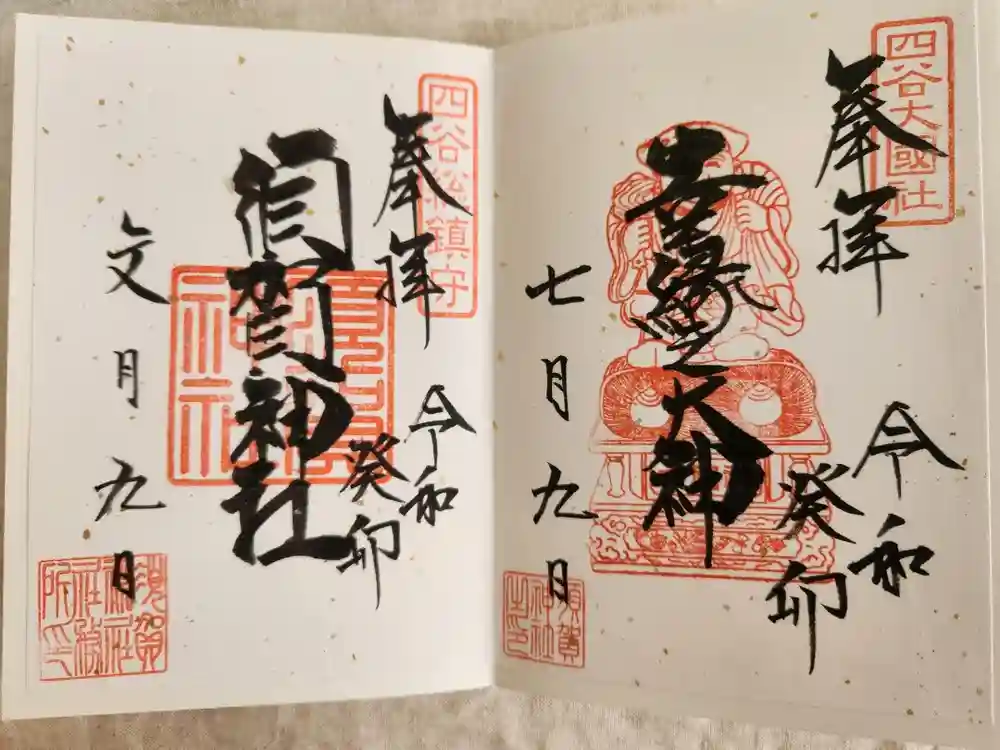 四谷大國社
奉拝
令和
癸卯
縁之大神
七月九日
須賀
神社
之印
四谷総鎮守
奉拝
令和
癸卯
須賀神社
須賀
神社
文月九日
須賀
神社
社務
所印